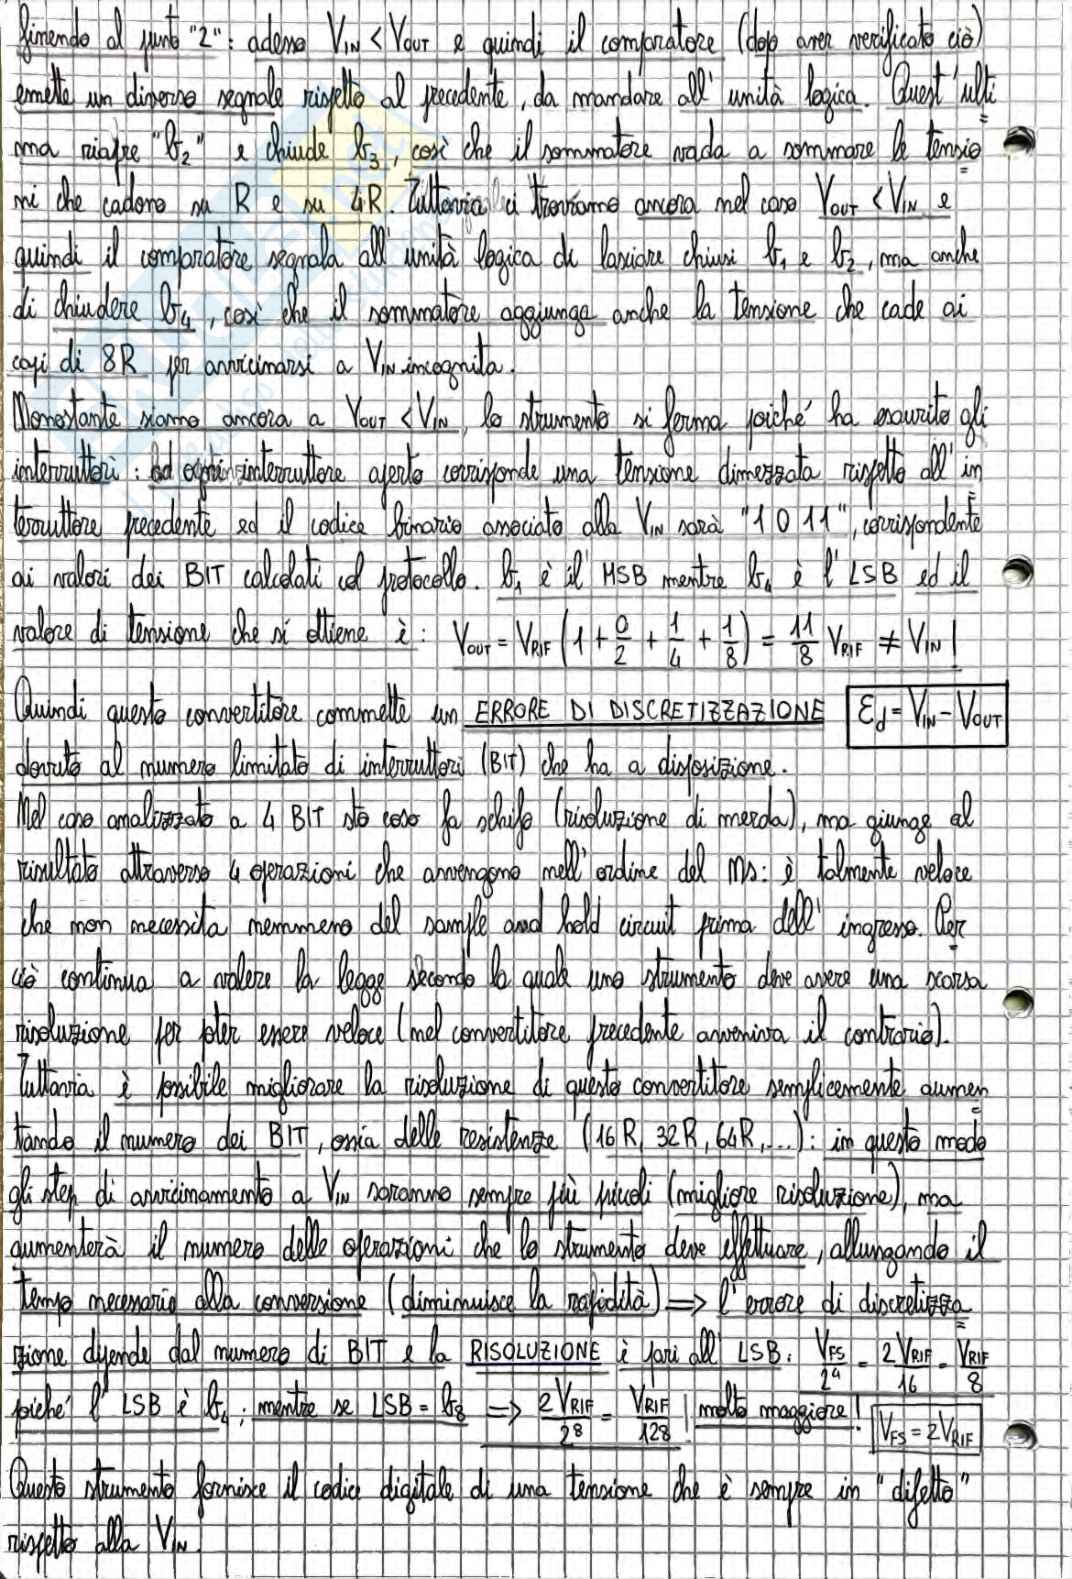 finendo al punto "2": adesso VIN < VOUT e quindi il comparatore (dopo aver verificato ciò)
emette un diverso segnale rispetto al precedente, da mandare all'unità logica. Quest'ulti
ma riapre "b2" e chiude b3, così che il sommatore vada a sommare le tensio
ni che cadono su R e su 4R. Tuttavia ci troviamo ancora nel caso VOUT < VIN e
quindi il comparatore segnala all'unità logica di lasciare chiusi b1 e b2, ma anche
di chiudere b4, così che il sommatore aggiunga anche la tensione che cade ai
capi di 8R per avvicinarsi a VIN incognita.
Nonostante siamo ancora a VOUT < VIN, lo strumento si ferma poiché ha esaurito gli
interruttori: ad ogni interruttore aperto corrisponde una tensione dimezzata rispetto all'in
terruttore precedente ed il codice binario associato alla VIN sarà "1011", corrispondente
ai valori dei BIT calcolati col protocollo. b1 è il MSB mentre b4 è l'LSB ed il
valore di tensione che si ottiene è: VOUT = VRIF (1 + 0/2 + 1/4 + 1/8) = 11/8 VRIF ≠ VIN!
Quindi questo convertitore commette un ERRORE DI DISCRETIZZAZIONE Ɛd = VIN - VOUT
dovuto al numero limitato di interruttori (BIT) che ha a disposizione.
Nel caso analizzato a 4 BIT sto coso fa schifo (risoluzione di merda), ma giunge al
risultato attraverso 4 operazioni che avvengono nell'ordine del ms: è talmente veloce
che non necessita nemmeno del sample and hold circuit prima dell'ingresso. Per
ciò continua a valere la legge secondo la quale uno strumento deve avere una scarsa
risoluzione per poter essere veloce (nel convertitore precedente avveniva il contrario).
Tuttavia è possibile migliorare la risoluzione di questo convertitore semplicemente aumen
tando il numero dei BIT, ossia delle resistenze (16R, 32R, 64R, ...): in questo modo
gli step di avvicinamento a VIN saranno sempre più piccoli (migliore risoluzione), ma
aumenterà il numero delle operazioni che lo strumento deve effettuare, allungando il
tempo necessario alla conversione (diminuisce la rapidità) => l'errore di discretizza
zione dipende dal numero di BIT e la RISOLUZIONE è pari all'LSB: VFS/2^4 = 2VRIF/16 = VRIF/8
poiché l'LSB è b4; mentre se LSB = b8 => 2VRIF/2^8 = VRIF/128 | molto maggiore! VFS = 2VRIF
Questo strumento fornisce il codice digitale di una tensione che è sempre in "difetto"
rispetto alla VIN.